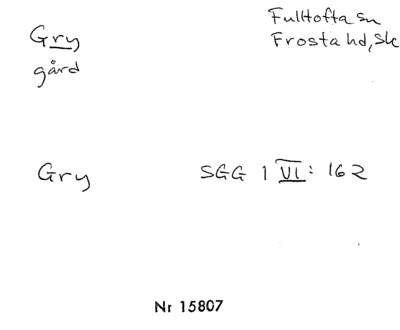 Gry
gård
Fulltofta sn
Frosta hd, Sk
Gry SGG 1 VI: 162
Nr 15807